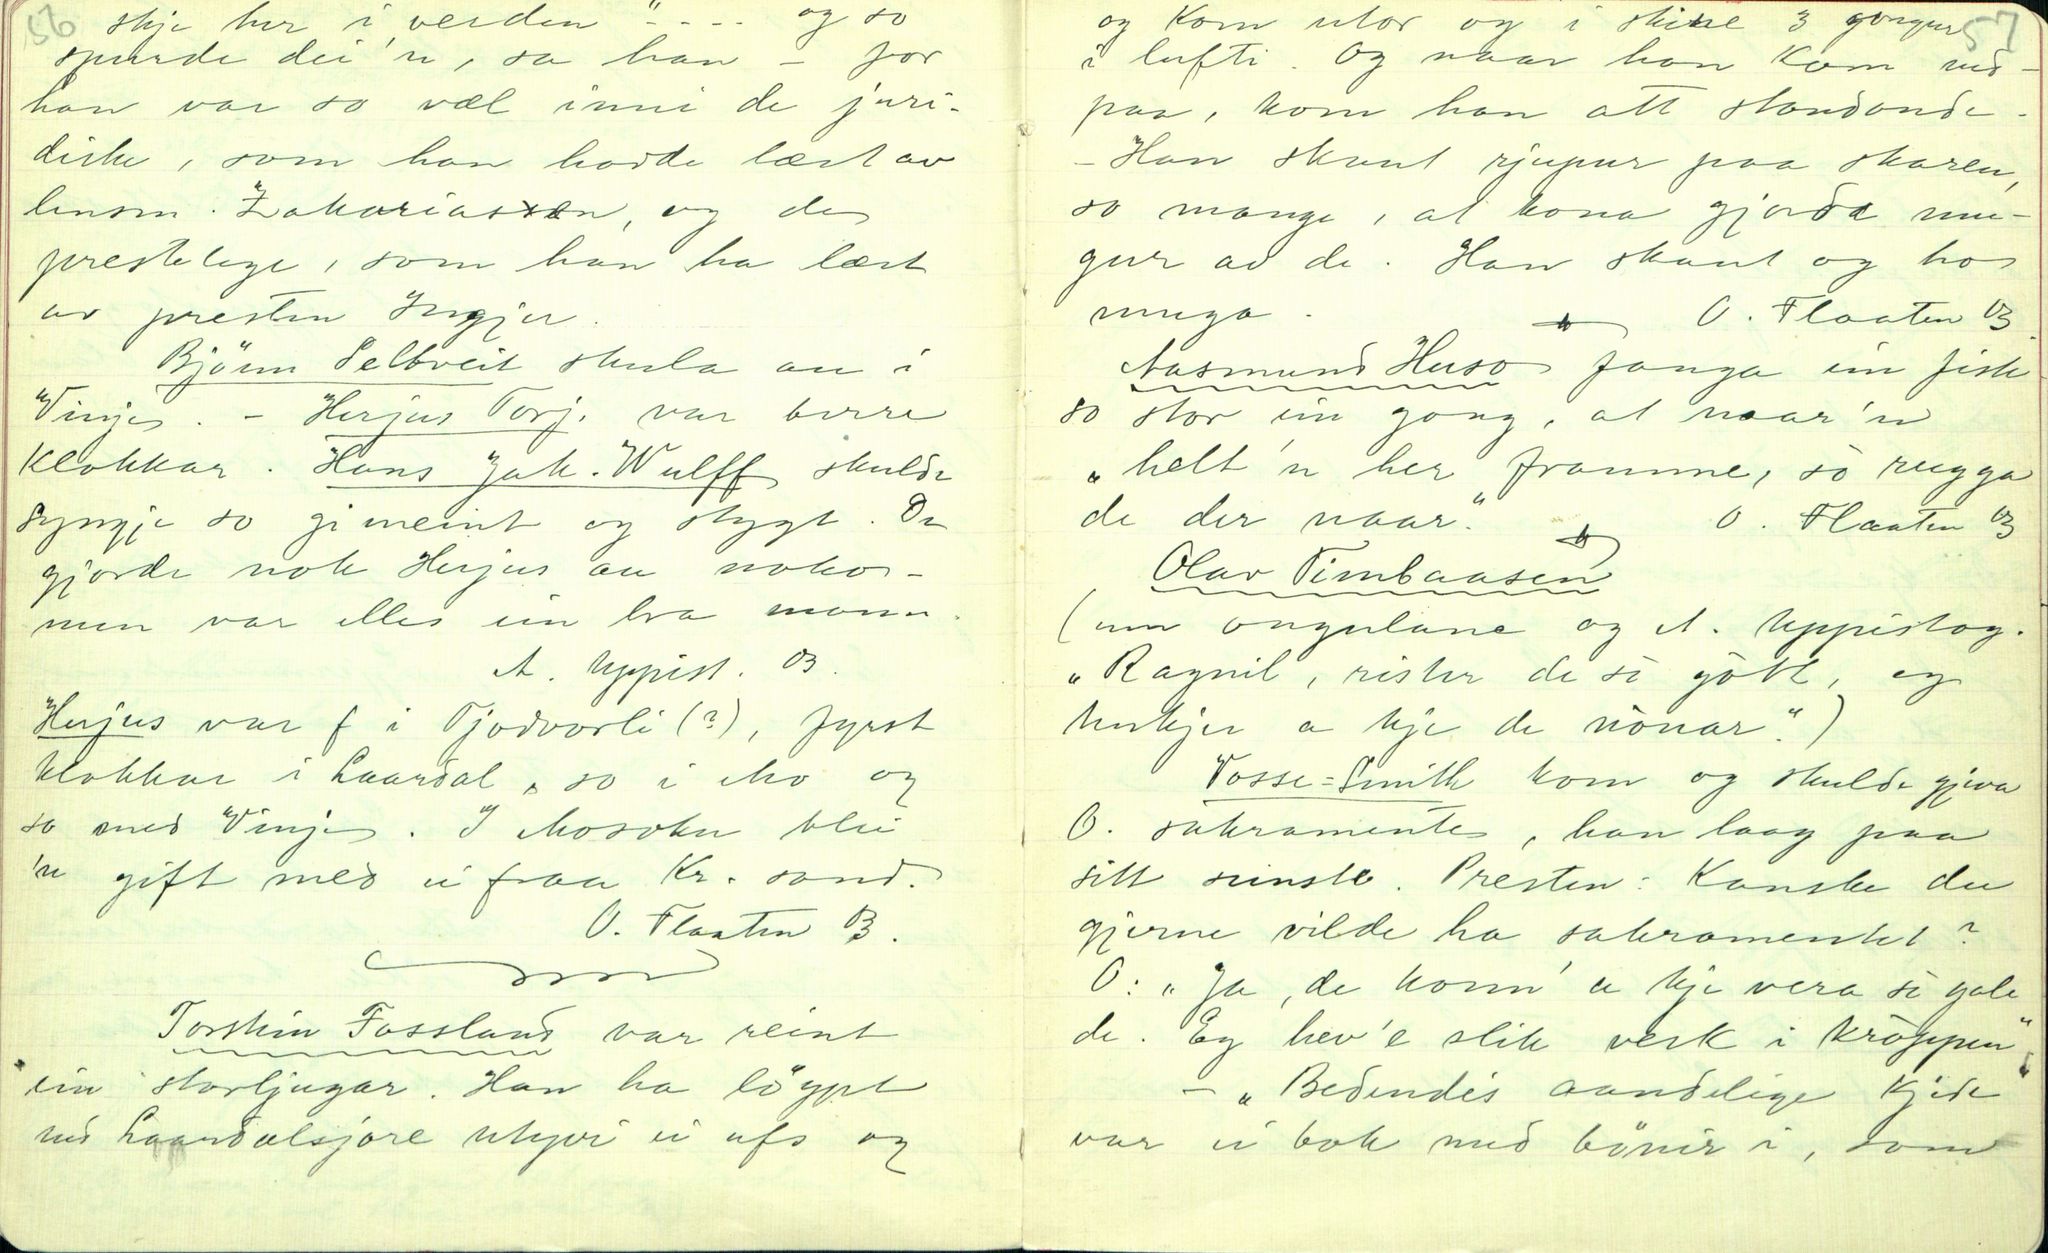 56
skje her i verden" - - - - og so
spurde dei 'n, sa han – for
han var so væl inni de juri-
diske, som han hadde lært av
lensm. Zakariassen, og de
prestelege, som han ha lært
av presten Ingjer.
Björn Selbveit skula au i
Vinje. – Herjus Torj. var berre
klokkar. Hans Jak. Wulff skulde
syngje so gimeint og stygt. De
gjorde nok Herjus au noko –
men var elles ein bra mann.
A. Uppist. 03.
Herjus var f i Tjodvorli (?), fyrst
klokkar i Laardal, so i Mo og
so med Vinje. I Mosokn blei
'n gift med ei fraa Kr. sand.
O. Flaaten 03.
Torstein Fossland var reint
ein storljugar. Han ha löypt
ned Laardalsjore utyvi ei ufs og
57
og kom utor og i skiene 3 gongur
i lufti. Og naar han kom ned-
paa, kom han att standande.
– Han skaut rjupur paa skaren,
so mange, at kona gjorde mu-
gur av de. Han skaut og ho
muga.
O. Flaaten 03.
Aasmund Huso fanga ein fisk
so stor ein gong, at naar 'n
"helt 'n her framme, so rugga
de der naar."
O. Flaaten 03
Olav Timbaasen
(um ongulane og A. Uppistog.
"Ragnil, rister de sö gött, eg
kje de nönar.")
Vosse=Smith kom og skulde gjeva
O. sakramente, han laag paa
sitt seinste. Presten: Kanske du
gjerne vilde ha sakramentet?
O: "Ja, de konn' a kje vera so gale
de. Eg hev 'e slik verk i kröppen"
– "Bedendes aandelige Kjede"
var ei bok med bönir i, som